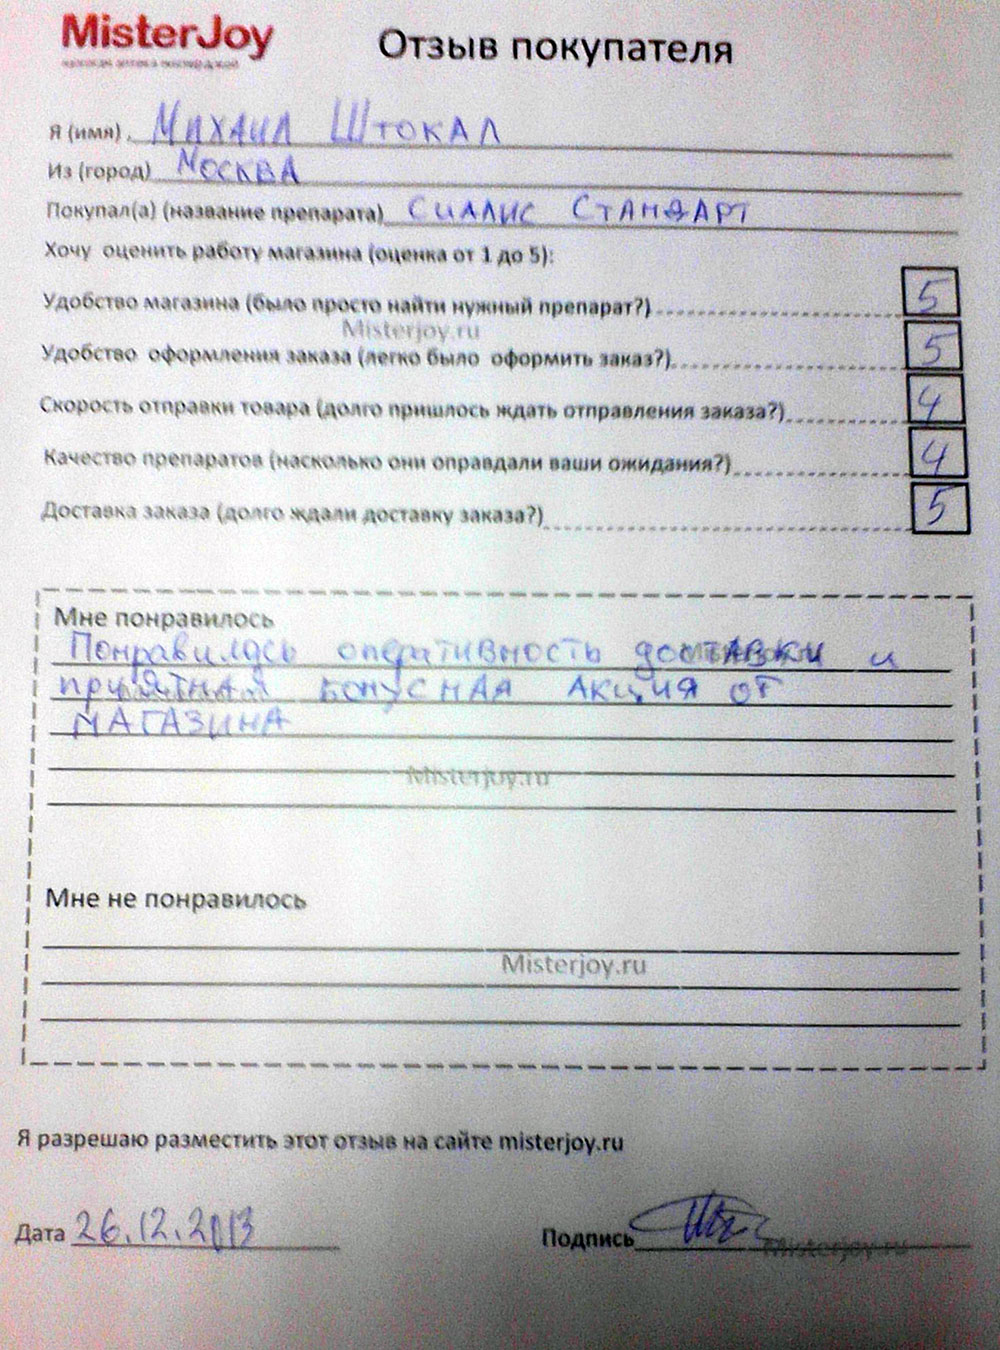 MisterJoy
Отзыв покупателя
Я (имя) Михаил Штокал
Из (город) Москва
Покупал(а) (название препарата) Сиалис Стандарт
Хочу оценить работу магазина (оценка от 1 до 5):
Удобство магазина (было просто найти нужный препарат?) 5
Misterjoy.ru
Удобство оформления заказа (легко было оформить заказ?) 5
Скорость отправки товара (долго пришлось ждать отправления заказа?) 4
Качество препаратов (насколько они оправдали ваши ожидания?) 4
Доставка заказа (долго ждали доставку заказа?) 5
Мне понравилось
Понравилась оперативность доставки и
приятная бонусная акция от
магазина
Misterjoy.ru
Мне не понравилось
Misterjoy.ru
Я разрешаю разместить этот отзыв на сайте misterjoy.ru
Дата 26.12.2013 Подпись
Misterjoy.ru